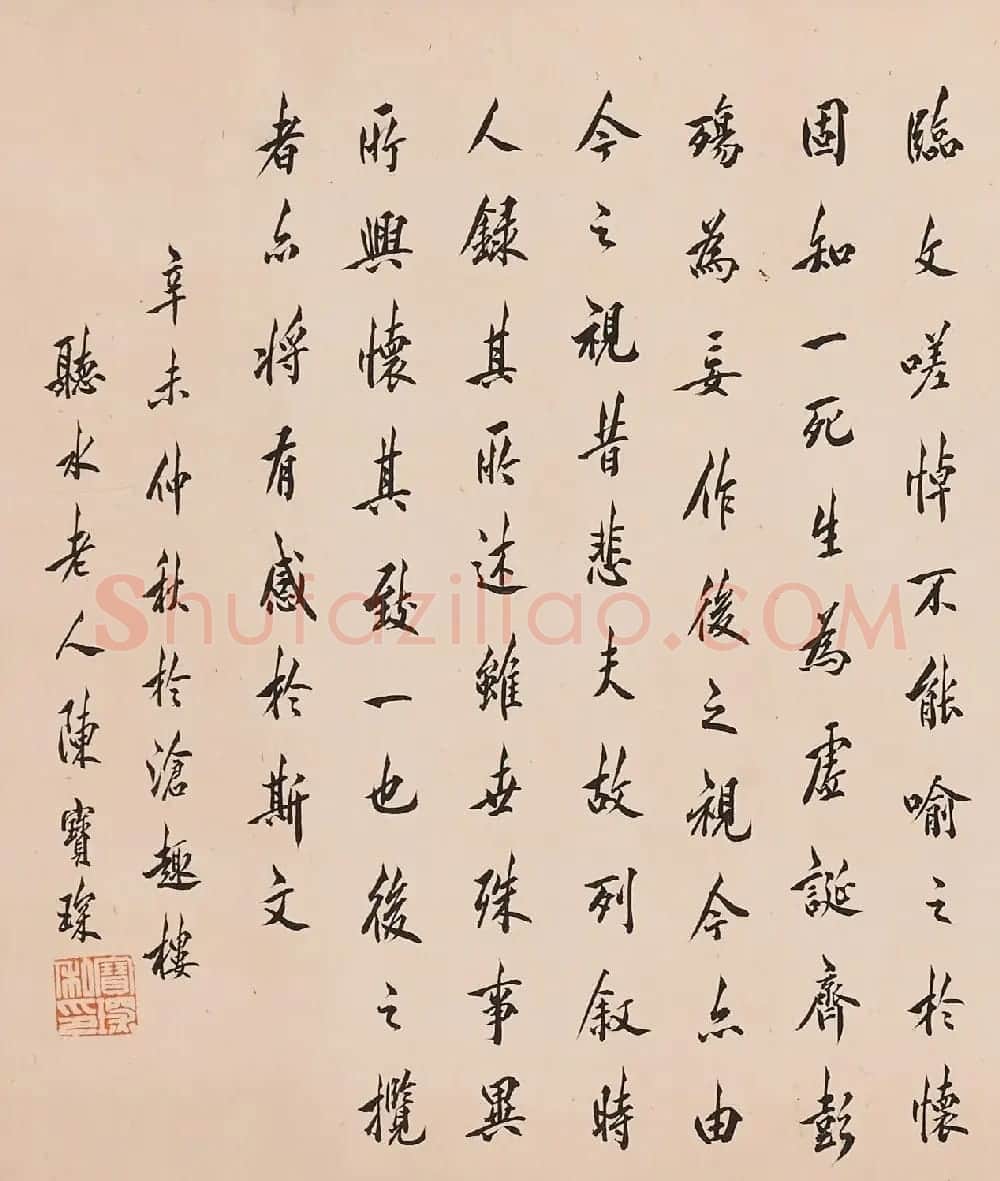 臨文嗟悼不能喻之於懷
固知一死生為虛誕齊彭
殤為妄作後之視今亦由
今之視昔悲夫故列叙時
人録其所述雖世殊事異
所興懷其致一也後之攬
者亦將有感於斯文
辛未仲秋於滄趣樓
聽水老人陳寶琛
寶琛私印
Shufaziliao.COM